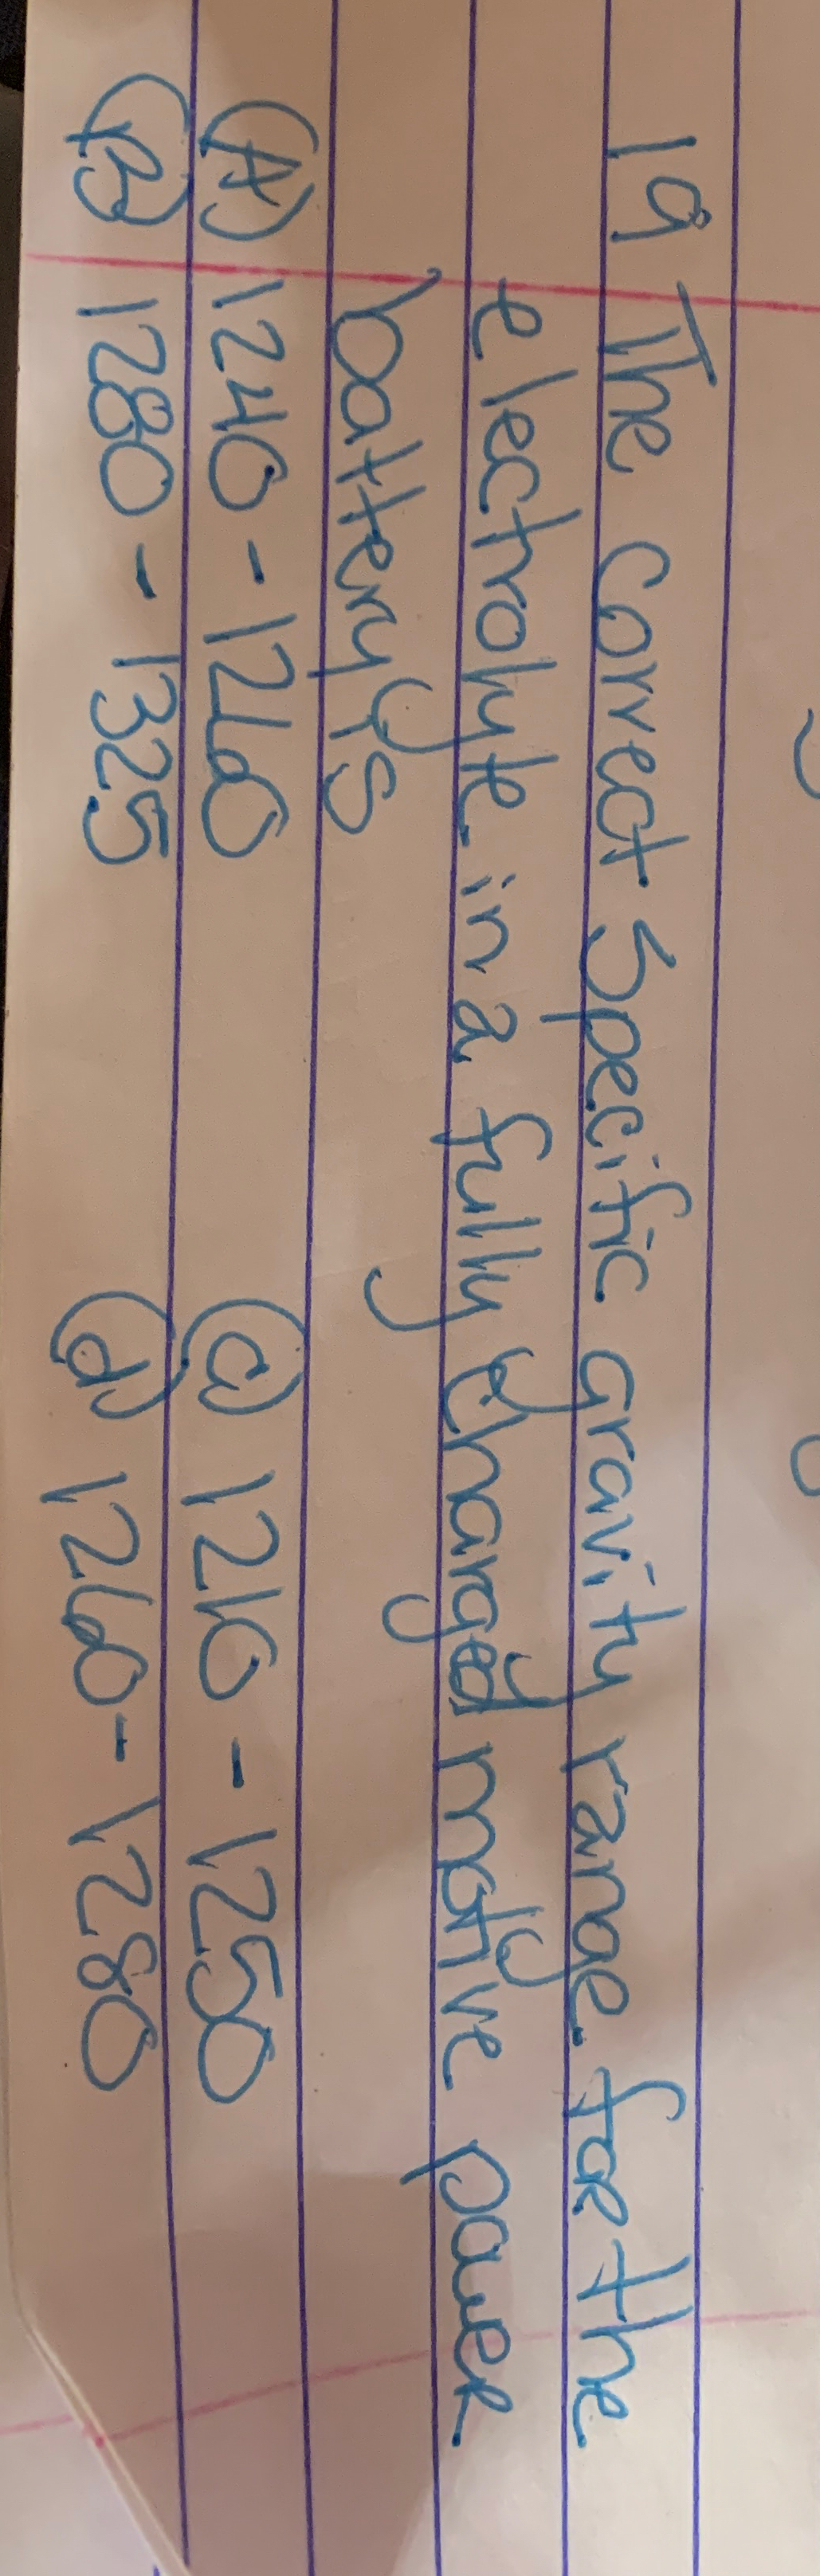 19 The correct specific gravity range for the
electrolyte in a fully charged motive power
battery is
(A) 1240 - 1260 (c) 1210 - 1250
(B) 1280 - 1325 (d) 1260 - 1280